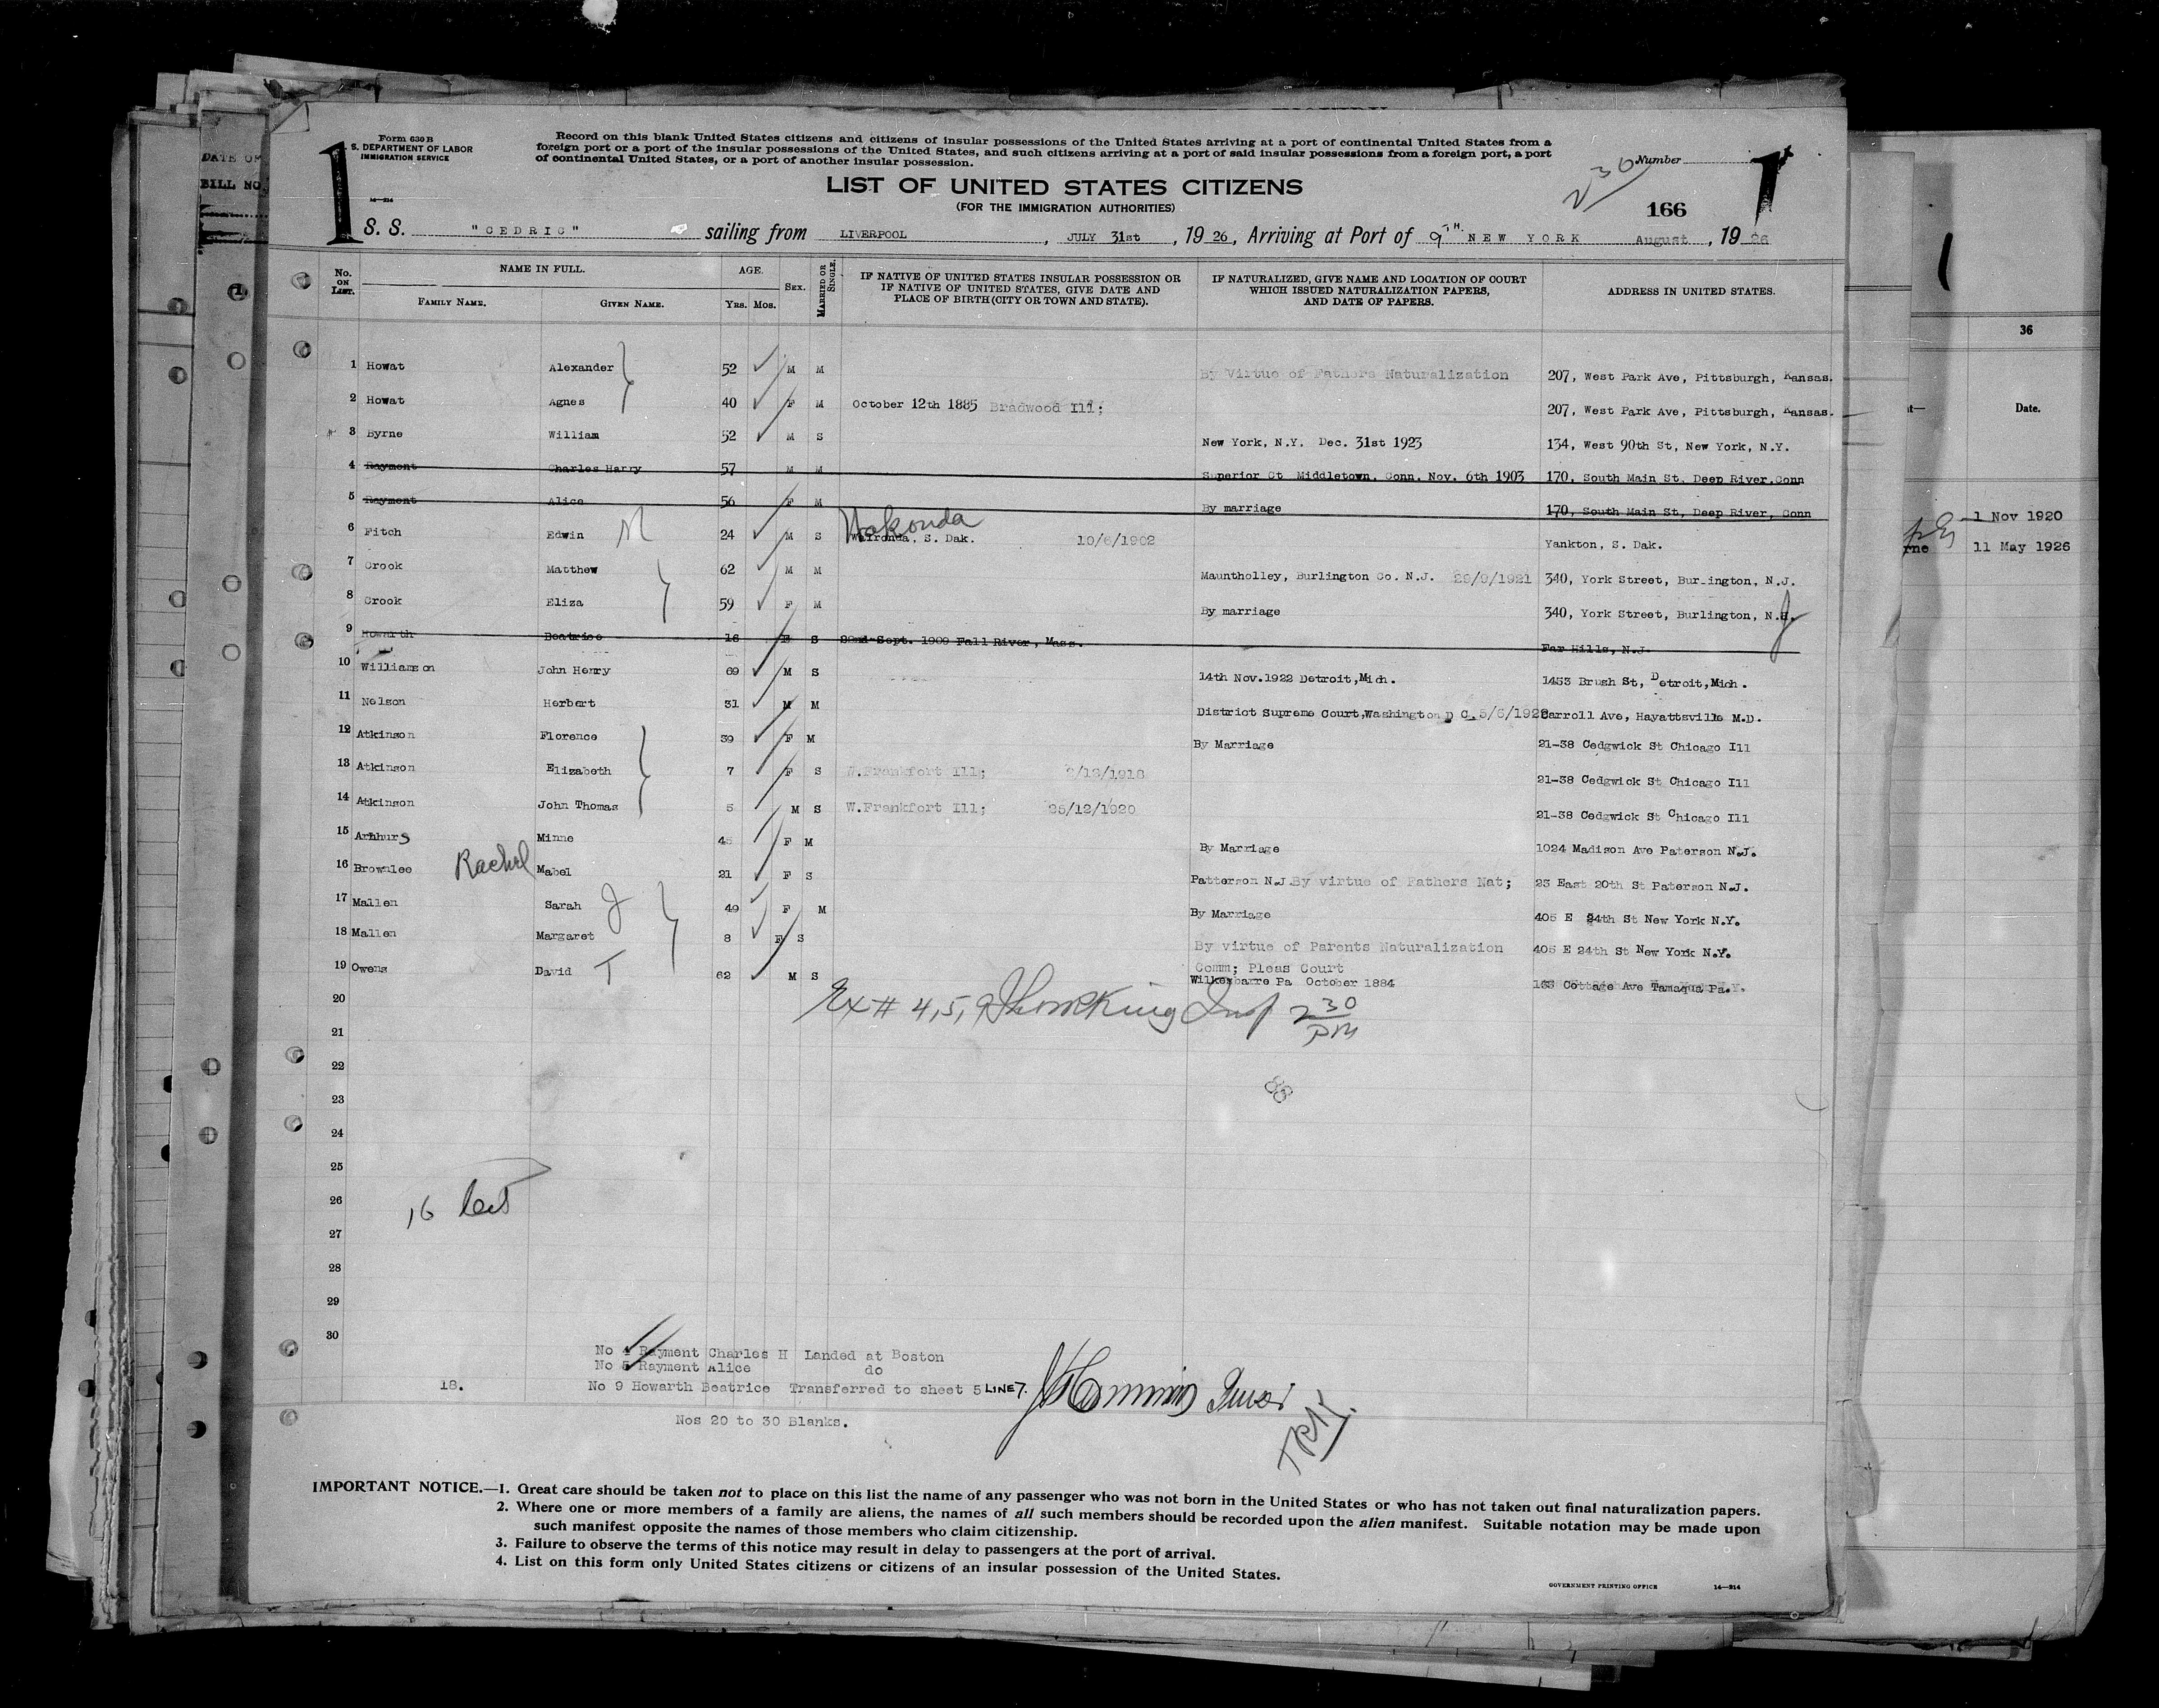 DATE OF
BILL NO.
Form 630 B
S. DEPARTMENT OF LABOR
IMMIGRATION SERVICE
14—214
1
Record on this blank United States citizens and citizens of insular possessions of the United States arriving at a port of continental United States from a
foreign port or a port of the insular possessions of the United States, and such citizens arriving at a port of said insular possessions from a foreign port, a port
of continental United States, or a port of another insular possession.
230 Number
1
LIST OF UNITED STATES CITIZENS
(FOR THE IMMIGRATION AUTHORITIES)
166
S. S. "CEDRIC" sailing from LIVERPOOL, JULY 31st, 1926, Arriving at Port of 9TH. NEW YORK August, 1926
No. ON LIST. NAME IN FULL. AGE. SEX. MARRIED OR SINGLE. IF NATIVE OF UNITED STATES INSULAR POSSESSION OR IF NATIVE OF UNITED STATES, GIVE DATE AND PLACE OF BIRTH (CITY OR TOWN AND STATE). IF NATURALIZED, GIVE NAME AND LOCATION OF COURT WHICH ISSUED NATURALIZATION PAPERS, AND DATE OF PAPERS. ADDRESS IN UNITED STATES.
FAMILY NAME. GIVEN NAME. YRS. MOS.
1 Howat Alexander 52 M M By Virtue of Fathers Naturalization 207, West Park Ave, Pittsburgh, Kansas.
2 Howat Agnes 40 F M October 12th 1885 Bradwood Ill; 207, West Park Ave, Pittsburgh, Kansas.
3 Byrne William 52 M S New York, N.Y. Dec. 31st 1923 134, West 90th St, New York, N.Y.
4 Raymont Charles Harry 57 M M Superior Ct Middletown, Conn. Nov. 6th 1903 170, South Main St, Deep River, Conn
5 Raymont Alice 56 F M By marriage 170, South Main St, Deep River, Conn
Wakonda
6 Fitch Edwin M 24 M S S. Dak. 10/6/1902 Yankton, S. Dak.
7 Crook Matthew 62 M M Mauntholley, Burlington Co. N.J. 29/9/1921 340, York Street, Burlington, N.J.
8 Crook Eliza 59 F M By marriage 340, York Street, Burlington, N.J.
9 Howarth Beatrice 16 F S 22nd Sept. 1909 Fall River, Mass. Far Hills, N.J.
10 Williamson John Henry 69 M S 14th Nov. 1922 Detroit, Mich. 1453 Brush St, Detroit, Mich.
11 Nelson Herbert 31 M M District Supreme Court, Washington D C, 5/6/192 Carroll Ave, Hayattsville M.D.
12 Atkinson Florence 39 F M By Marriage 21-38 Cedgwick St Chicago Ill
13 Atkinson Elizabeth 7 F S W. Frankfort Ill; /12/1918 21-38 Cedgwick St Chicago Ill
14 Atkinson John Thomas 5 M S W. Frankfort Ill; 25/12/1920 21-38 Cedgwick St Chicago Ill
15 Arthurs Minne 45 F M By Marriage 1024 Madison Ave Paterson N.J.
16 Brownlee Rachel Mabel 21 F S Patterson N.J. By virtue of Fathers Nat; 23 East 20th St Paterson N.J.
17 Mallen Sarah J 49 F M By Marriage 405 E 24th St New York N.Y.
18 Mallen Margaret 8 F S By virtue of Parents Naturalization 405 E 24th St New York N.Y.
19 Owens David T 62 M S Comm; Pleas Court Wilkesbarre Pa October 1884 163 Cottage Ave Tamaqua Pa.
20
Ex # 4, 5, 9 King Insp 2 30 PM
21
22
23
24
25
26
16
27
28
29
30
No 4 Rayment Charles H Landed at Boston
No 5 Rayment Alice do
18. No 9 Howarth Beatrice Transferred to sheet 5 LINE 7.
Nos 20 to 30 Blanks.
TRK
IMPORTANT NOTICE.—1. Great care should be taken not to place on this list the name of any passenger who was not born in the United States or who has not taken out final naturalization papers.
2. Where one or more members of a family are aliens, the names of all such members should be recorded upon the alien manifest. Suitable notation may be made upon
such manifest opposite the names of those members who claim citizenship.
3. Failure to observe the terms of this notice may result in delay to passengers at the port of arrival.
4. List on this form only United States citizens or citizens of an insular possession of the United States.
GOVERNMENT PRINTING OFFICE 14—214
1
36
Date.
1 Nov 1920
11 May 1926